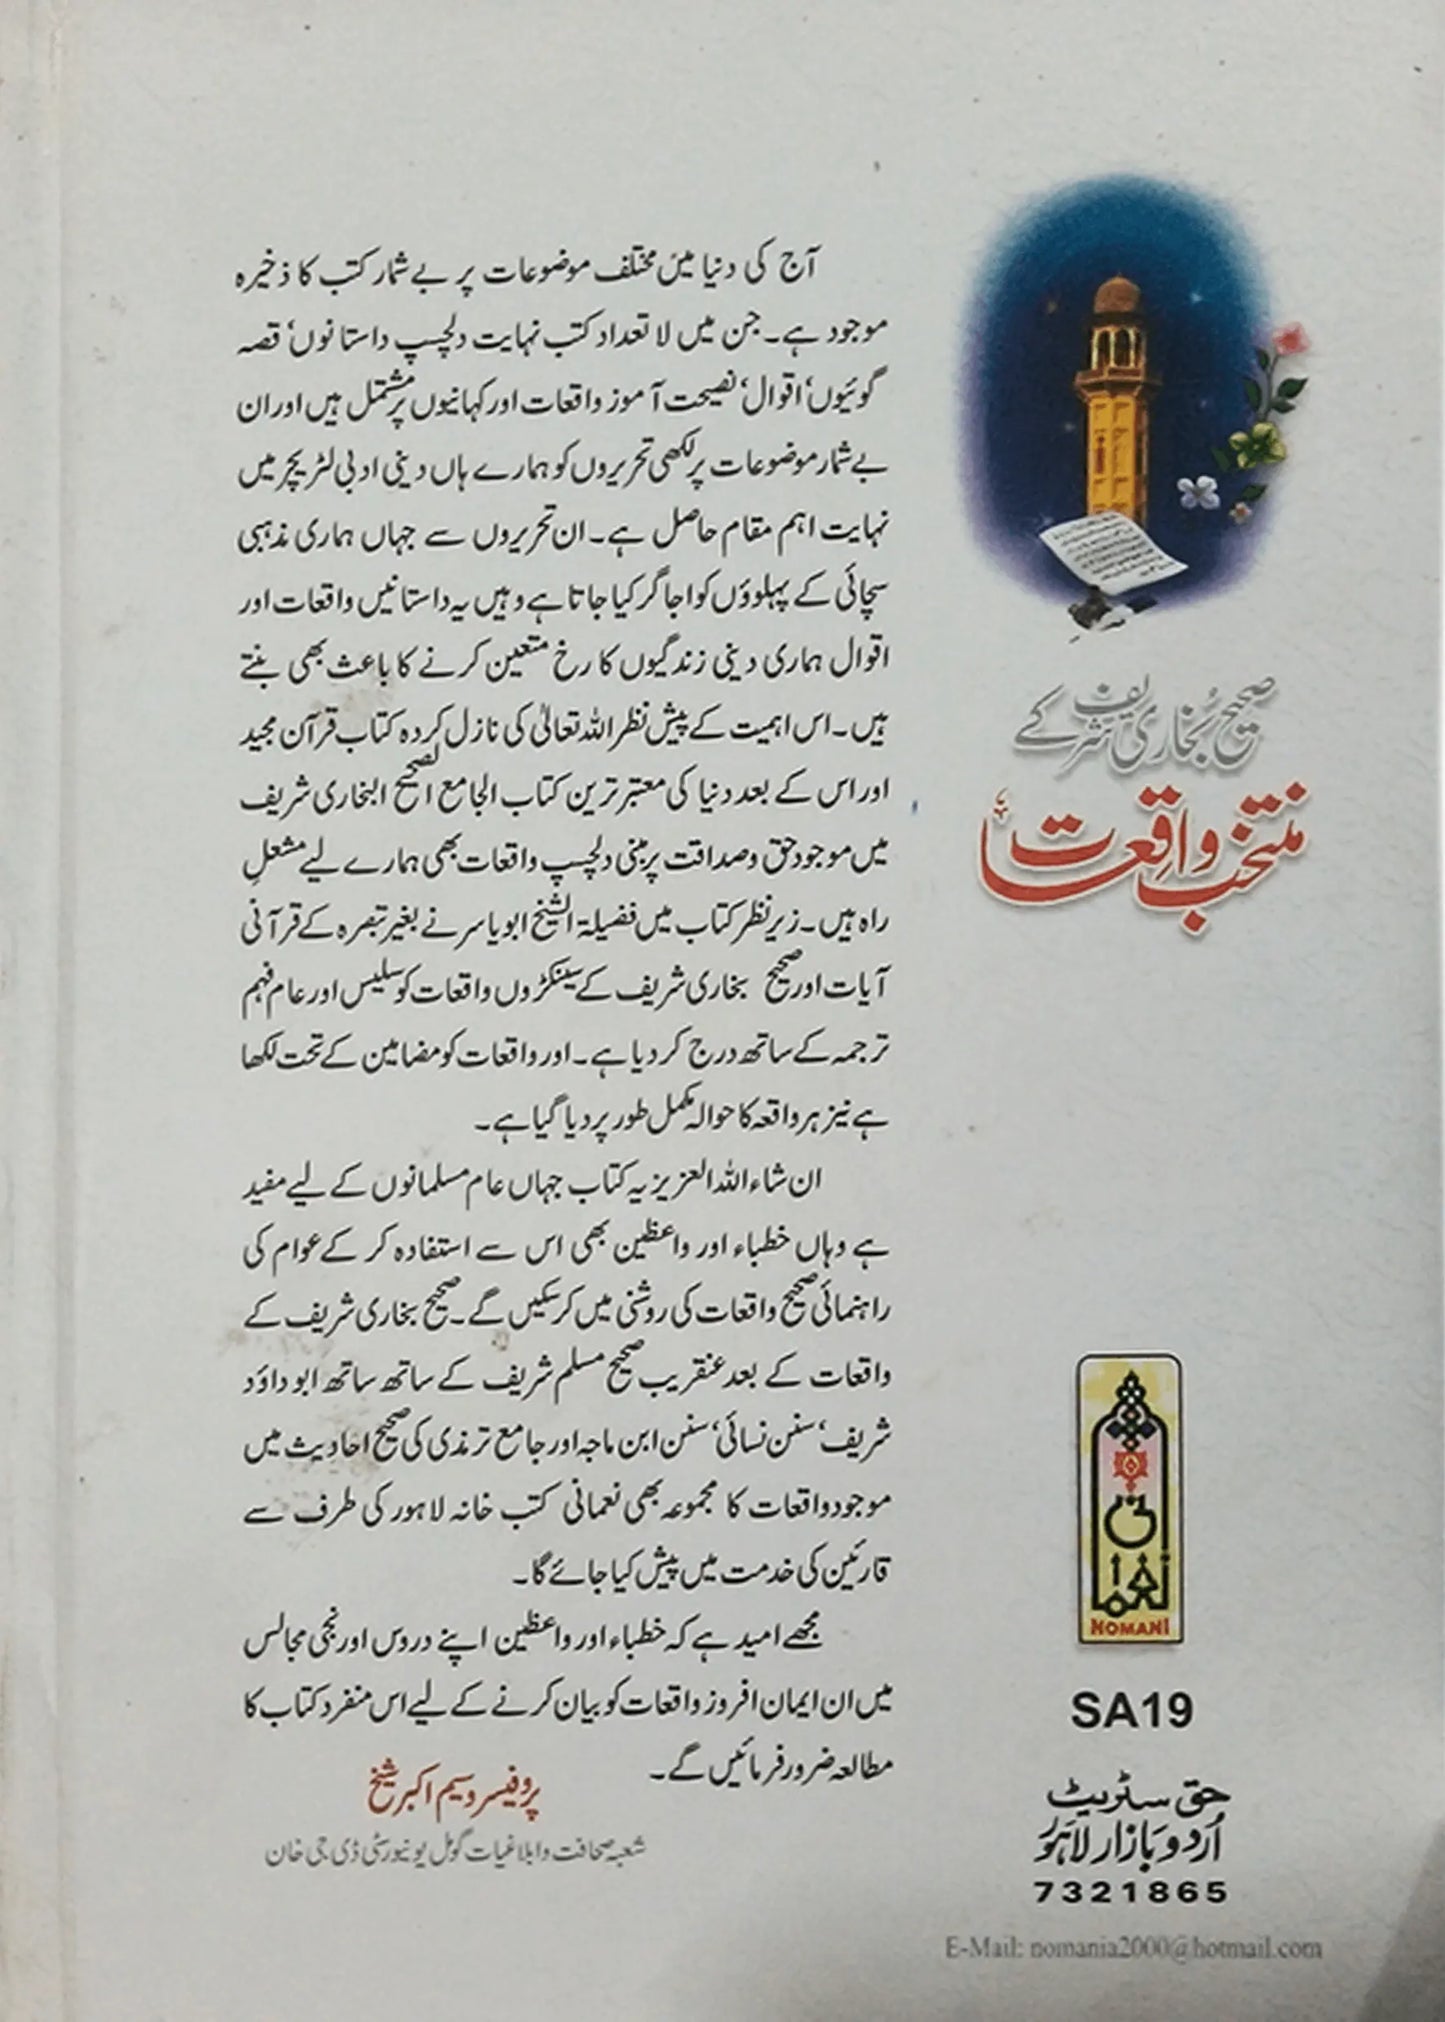 آج کی دنیا میں مختلف موضوعات پر بے شمار کتب کا ذخیرہ
موجود ہے۔ جن میں لا تعداد کتب نہایت دلچسپ داستانوں، قصہ
گوئیوں، اقوال، نصیحت آموز واقعات اور کہانیوں پر مشتمل ہیں اور ان
بے شمار موضوعات پر لکھی تحریروں کو ہمارے ہاں دینی ادبی لٹریچر میں
نہایت اہم مقام حاصل ہے۔ ان تحریروں سے جہاں ہماری مذہبی
سچائی کے پہلوؤں کو اجاگر کیا جاتا ہے وہیں یہ داستانیں واقعات اور
اقوال ہماری دینی زندگیوں کا رخ متعین کرنے کا باعث بھی بنتے
ہیں۔ اس اہمیت کے پیش نظر اللہ تعالیٰ کی نازل کردہ کتاب قرآن مجید
اور اس کے بعد دنیا کی معتبر ترین کتاب الجامع الصحیح البخاری شریف
میں موجود حق و صداقت پر مبنی دلچسپ واقعات بھی ہمارے لیے مشعلِ
راہ ہیں۔ زیر نظر کتاب میں فضیلۃ الشیخ ابو یاسر نے بغیر تبصرہ کے قرآنی
آیات اور صحیح بخاری شریف کے سینکڑوں واقعات کو سلیس اور عام فہم
ترجمہ کے ساتھ درج کر دیا ہے۔ اور واقعات کو مضامین کے تحت لکھا
ہے نیز ہر واقعہ کا حوالہ مکمل طور پر دیا گیا ہے۔
ان شاء اللہ العزیز یہ کتاب جہاں عام مسلمانوں کے لیے مفید
ہے وہاں خطباء اور واعظین بھی اس سے استفادہ کر کے عوام کی
راہنمائی صحیح واقعات کی روشنی میں کر سکیں گے۔ صحیح بخاری شریف کے
واقعات کے بعد عنقریب صحیح مسلم شریف کے ساتھ ساتھ ابو داؤد
شریف، سنن نسائی، سنن ابن ماجہ اور جامع ترمذی کی صحیح احادیث میں
موجود واقعات کا مجموعہ بھی نعمانی کتب خانہ لاہور کی طرف سے
قارئین کی خدمت میں پیش کیا جائے گا۔
مجھے امید ہے کہ خطباء اور واعظین اپنے دروس اور نجی مجالس
میں ان ایمان افروز واقعات کو بیان کرنے کے لیے اس منفرد کتاب کا
مطالعہ ضرور فرمائیں گے۔
پروفیسر وسیم اکبر شیخ
شعبہ صحافت و ابلاغیات گومل یونیورسٹی ڈی جی خان
صحیح بُخاری شریف کے
منتخب واقِعات
نعمانی
NOMANI
SA19
حق سٹریٹ
اُردو بازار لاہور
7321865
E-Mail: nomania2000@hotmail.com